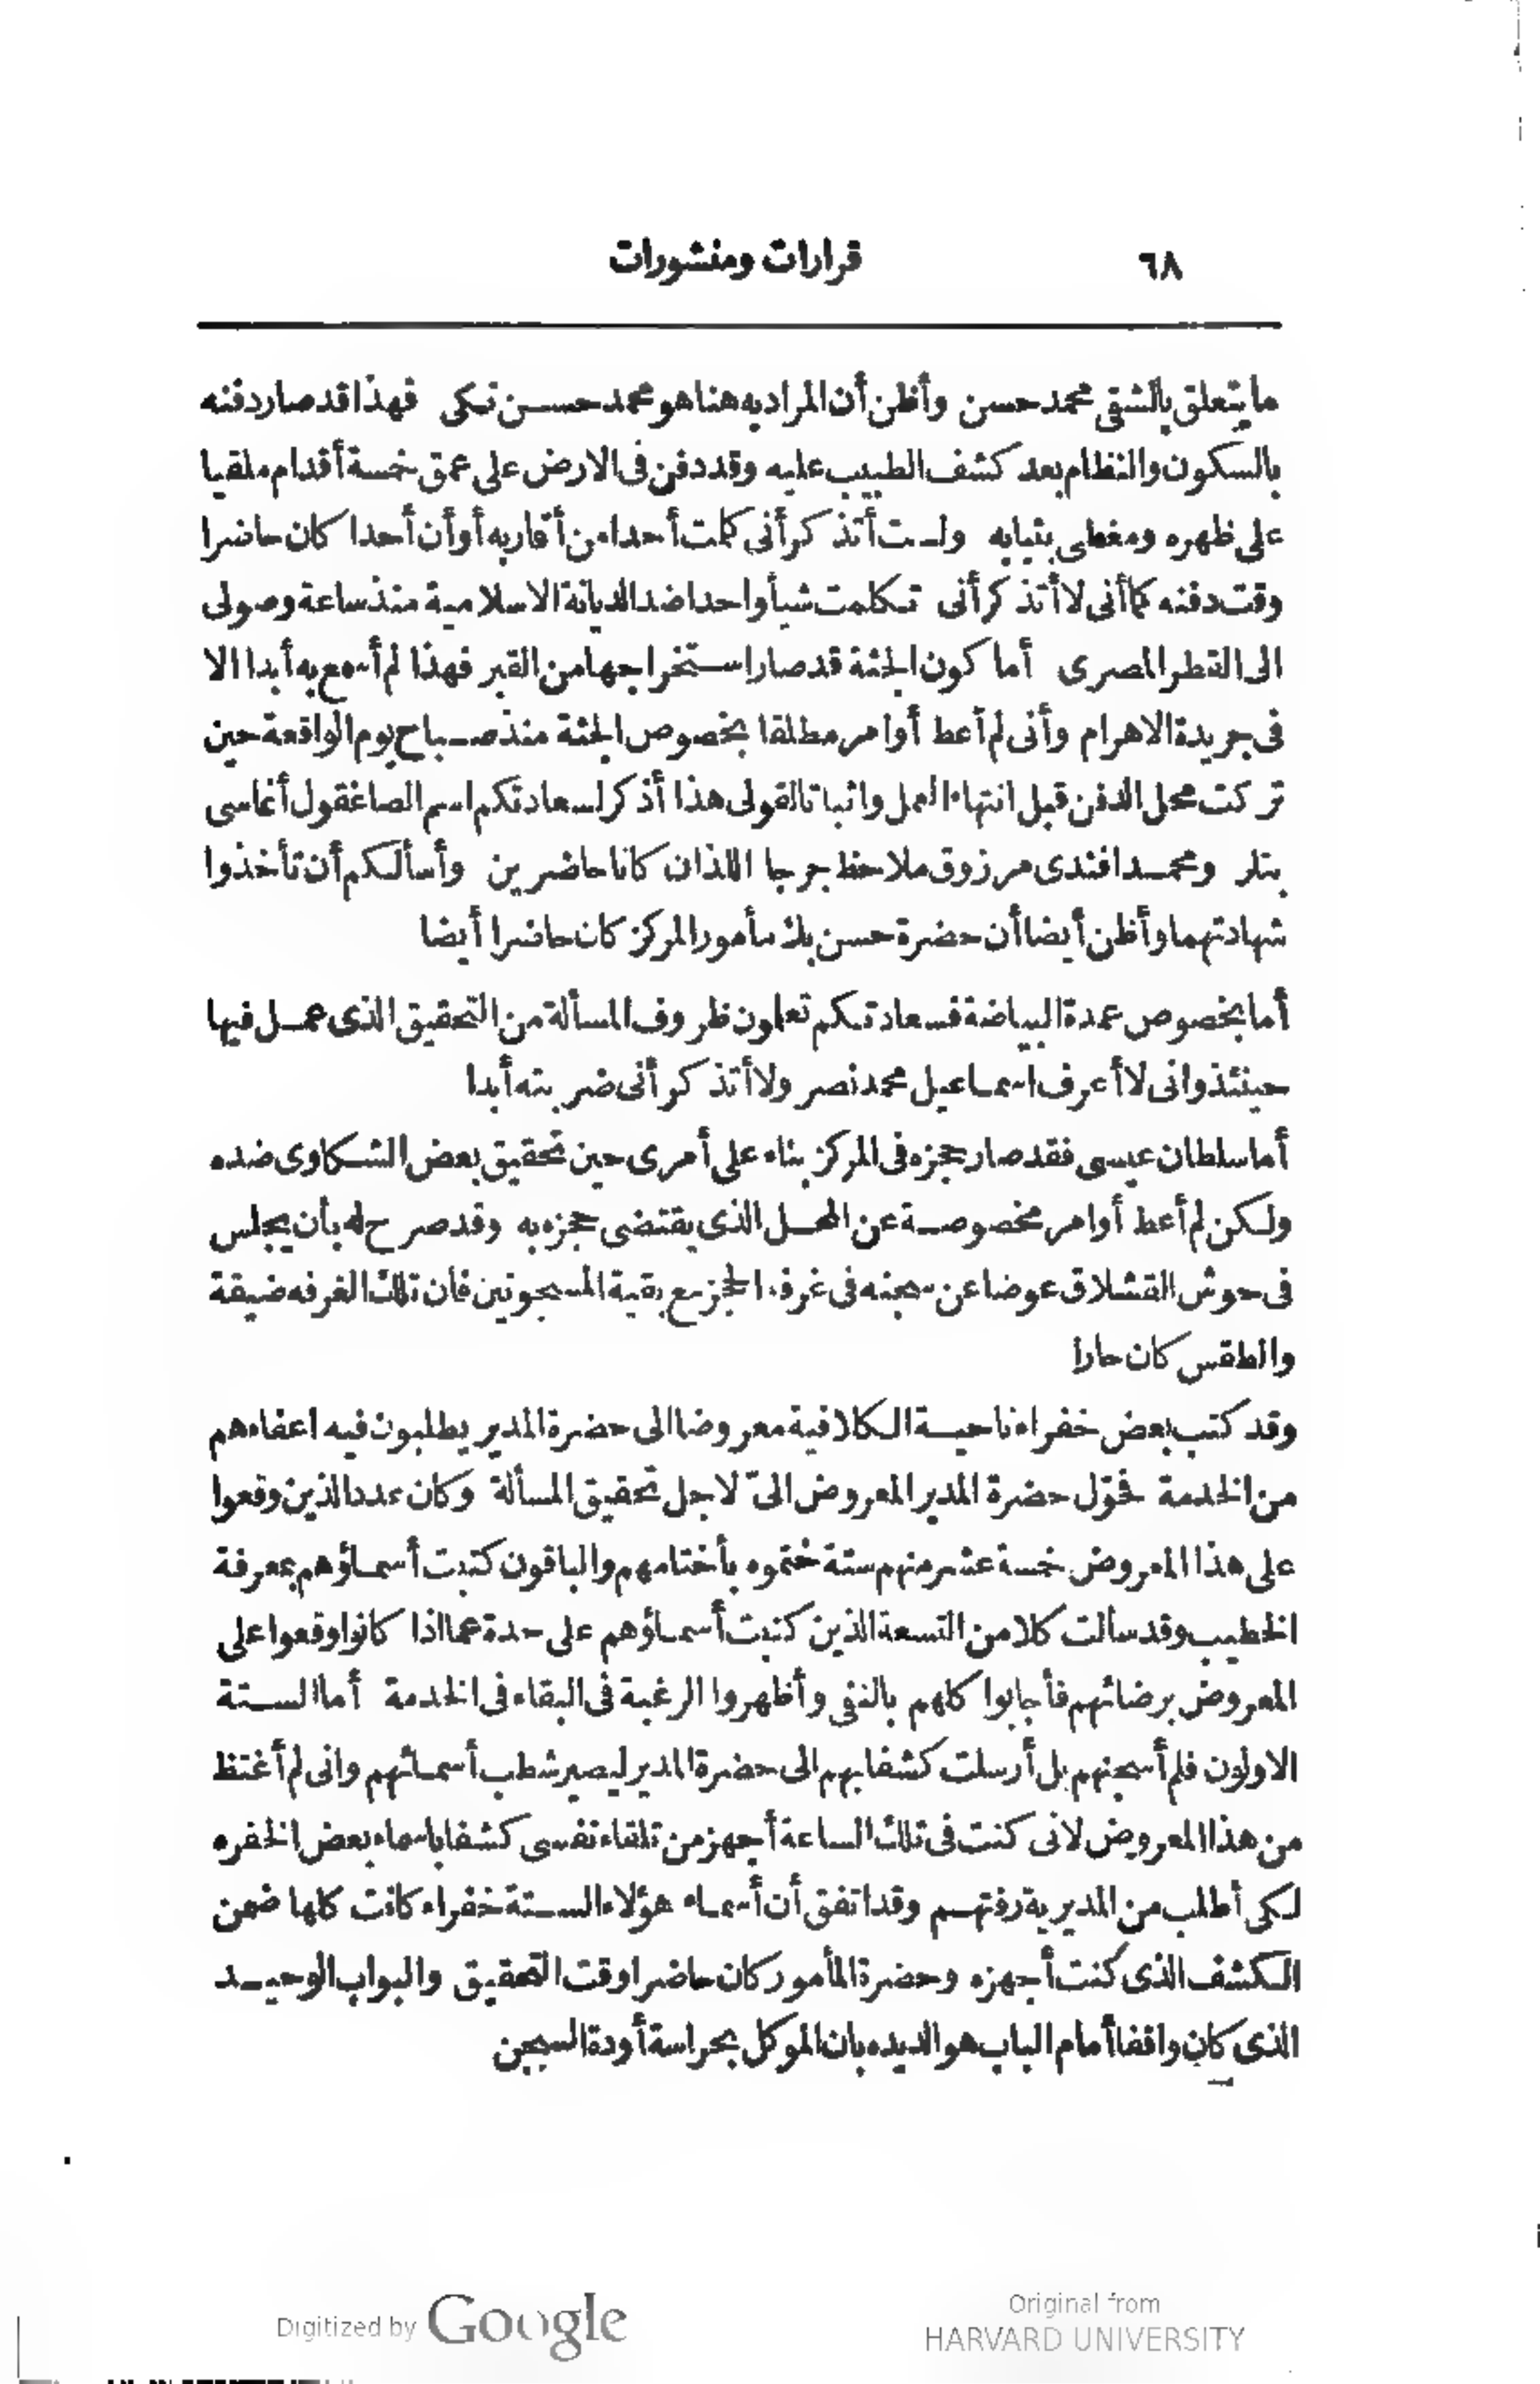 ٦٨ قرارات ومنشورات
ما يتعلق بالشقى محمد حسن وأظن أن المراد به هنا هو محمد حسن تكى فهذا قد صار دفنه
بالسكون والنظام بعد كشف الطبيب عليه وقد دفن فى الارض على عمق خمسة أقدام ملقيا
على ظهره ومغطى بثيابه ولست أتذكر أنى كلمت أحدا من أقاربه أو أن أحدا كان حاضرا
وقت دفنه كما أنى لا أتذكر أنى تكلمت شيأ واحدا ضد الديانة الاسلامية منذ ساعة وصولى
الى القطر المصرى أما كون الجثة قد صار استخراجها من القبر فهذا لم أسمع به أبدا الا
فى جريدة الاهرام وأنى لم أعط أوامر مطلقا بخصوص الجثة منذ صباح يوم الواقعة حين
تركت محل الدفن قبل انتهاء العمل واثباتا لقولى هذا أذكر لسعادتكم اسم الصاغقول أغاسى
بتلر ومحمد افندى مرزوق ملاحظ جرجا اللذان كانا حاضرين وأسألكم أن تأخذوا
شهادتهما وأظن أيضا أن حضرة حسن بك مأمور المركز كان حاضرا أيضا
أما بخصوص عمدة البياضة فسعادتكم تعلمون ظروف المسألة من التحقيق الذى عمل فيها
حينئذ وانى لا أعرف اسماعيل محمد نصر ولا أتذكر أنى ضربته أبدا
أما سلطان عيسى فقد صار حجزه فى المركز بناء على أمرى حين تحقيق بعض الشكاوى ضده
ولكن لم أعط أوامر مخصوصة عن المحل الذى يقتضى حجزه به وقد صرح له بأن يجلس
فى حوش القشلاق عوضا عن سجنه فى غرفة الحجز مع بقية المسجونين فان تلك الغرفه ضيقة
والطقس كان حارا
وقد كتب بعض خفراء ناحية الكلافية معروضا الى حضرة المدير يطلبون فيه اعفاءهم
من الخدمة فحوّل حضرة المدير المعروض الىّ لاجل تحقيق المسألة وكان عدد الذين وقعوا
على هذا المعروض خمسة عشر منهم ستة ختموه بأختامهم والباقون كتبت أسماؤهم بمعرفة
الخطيب وقد سألت كلا من التسعة الذين كتبت أسماؤهم على حدة عما اذا كانوا وقعوا على
المعروض برضائهم فأجابوا كلهم بالنفى وأظهروا الرغبة فى البقاء فى الخدمة أما الستة
الاولون فلم أسجنهم بل أرسلت كشفا بهم الى حضرة المدير ليصير شطب أسمائهم وانى لم أغتظ
من هذا المعروض لانى كنت فى تلك الساعة أجهز من تلقاء نفسى كشفا باسماء بعض الخفره
لكى أطلب من المديرية رفتهم وقد اتفق أن أسماء هؤلاء الستة خفراء كانت كلها ضمن
الكشف الذى كنت أجهزه وحضرة المأمور كان حاضرا وقت التحقيق والبواب الوحيد
الذى كان واقفا أمام الباب هو الديده بان الموكل بحراسة أودة السجن
Digitized by Google
Original from
HARVARD UNIVERSITY